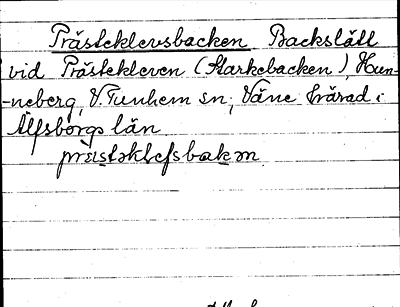 Prästeklevsbacken Backslätt
vid Prästekleven (Starkebacken), Hun-
-neberg, V. Tunhem sn, Väne härad i
Älfsborgs län